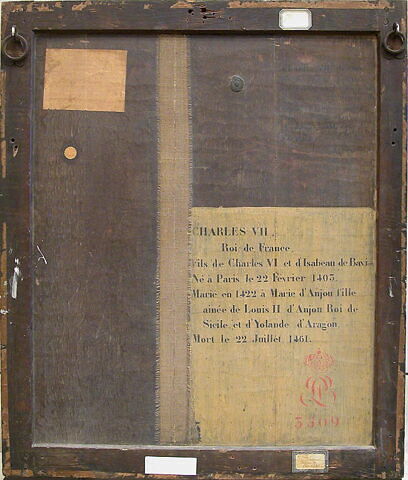 CHARLES VII,
Roi de France,
Fils de Charles VI et d'Isabeau de Bavi-
Né à Paris le 22 Février 1403.
Marié en 1422 à Marie d'Anjou fille
ainée de Louis II d'Anjou Roi de
Sicile et d'Yolande d'Aragon.
Mort le 22 Juillet 1461.
LP